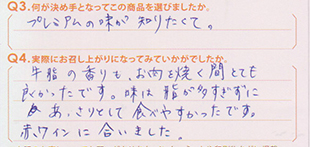 Q3.何が決め手となってこの商品を選びましたか。
プレミアムの味が知りたくて。
Q4.実際にお召し上がりになってみていかがでしたか。
牛脂の香りも、お肉を焼く間とても
良かったです。味は脂が多すぎずに
あっさりとして食べやすかったです。
赤ワインに合いました。